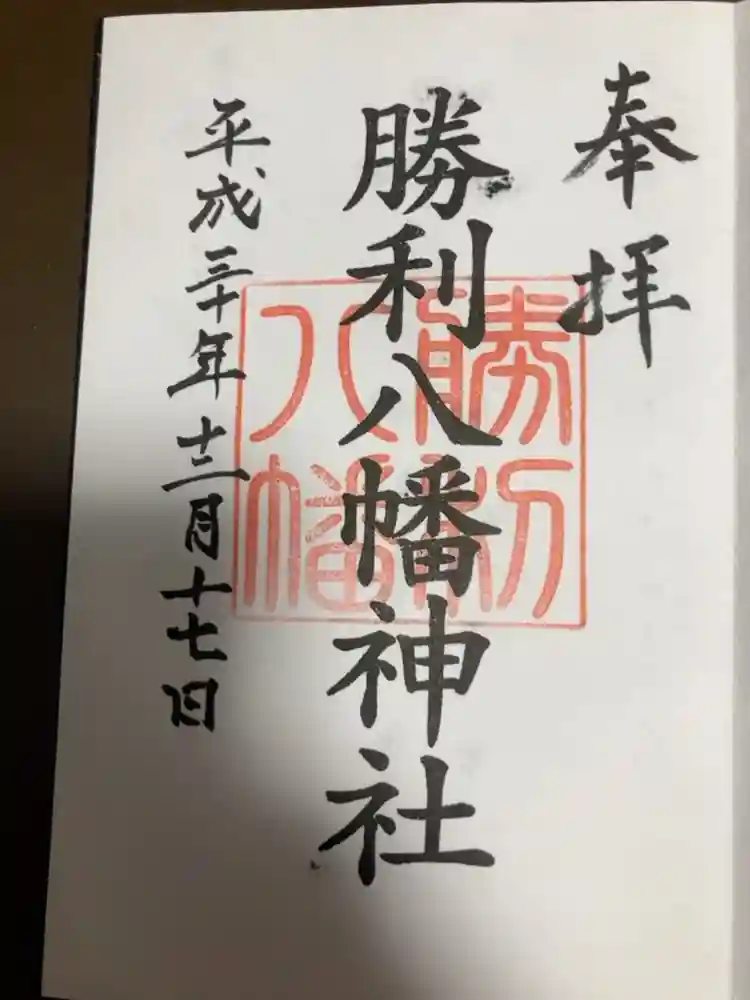 奉拝
勝利八幡神社
勝利
八幡
平成三十年十二月十七日